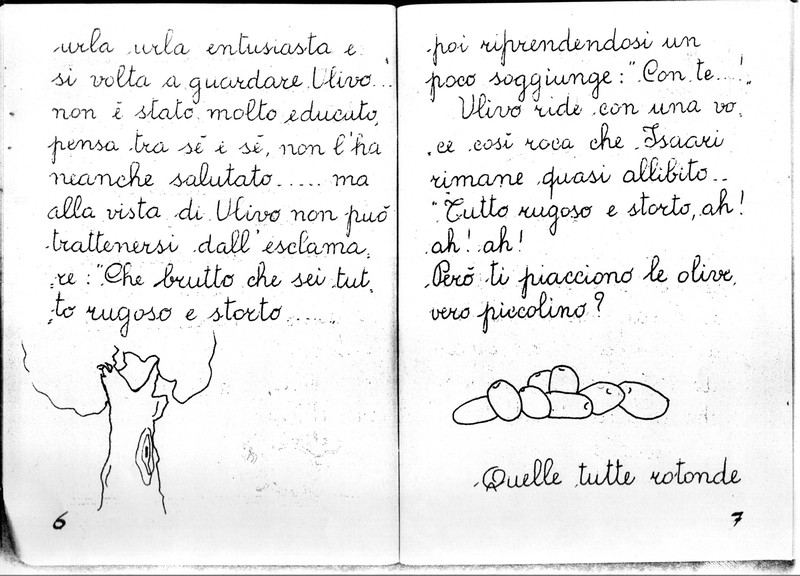 urla urla entusiasta e
si volta a guardare Ulivo...
non é stato molto educato,
pensa tra sé e sé, non l'ha
neanche salutato..... ma
alla vista di Ulivo non può
trattenersi dall'esclama,
re: "Che brutto che sei tut,
to rugoso e storto......
6
poi riprendendosi un
poco soggiunge: "Con te...!"
Ulivo ride con una vo,
ce così roca che Isaari
rimane quasi allibito..
"Tutto rugoso e storto, ah!
ah! ah!
Però ti piacciono le olive,
vero piccolino?
Quelle tutte rotonde
7